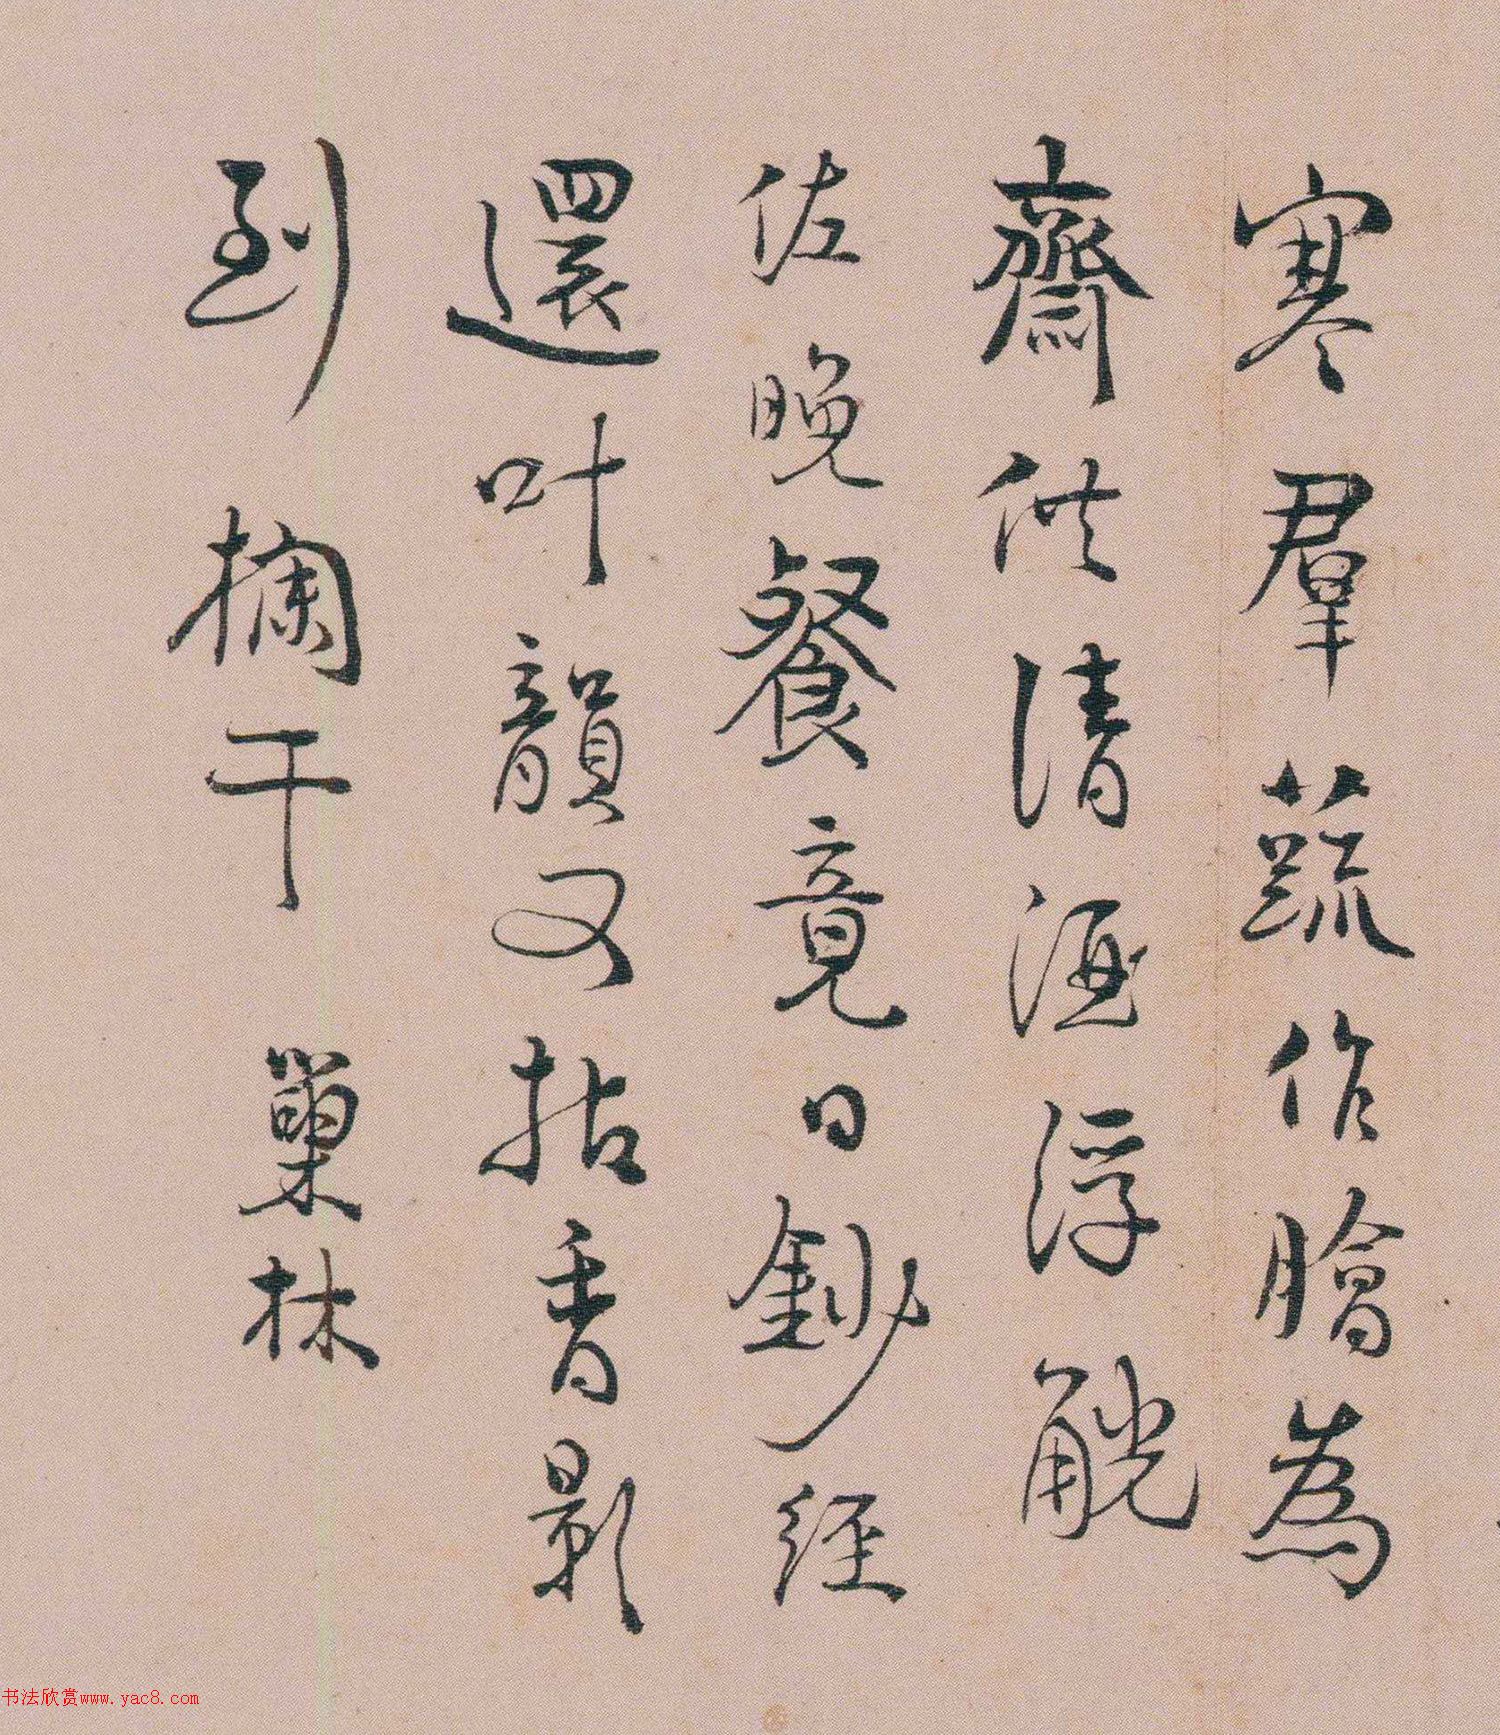 寒羣蔬作膾為
齋供清酒浮觥
佐晚餐竟日鈔經
還叶韻又拈香影
到欄干 巢林
书法欣赏www.yac8.com